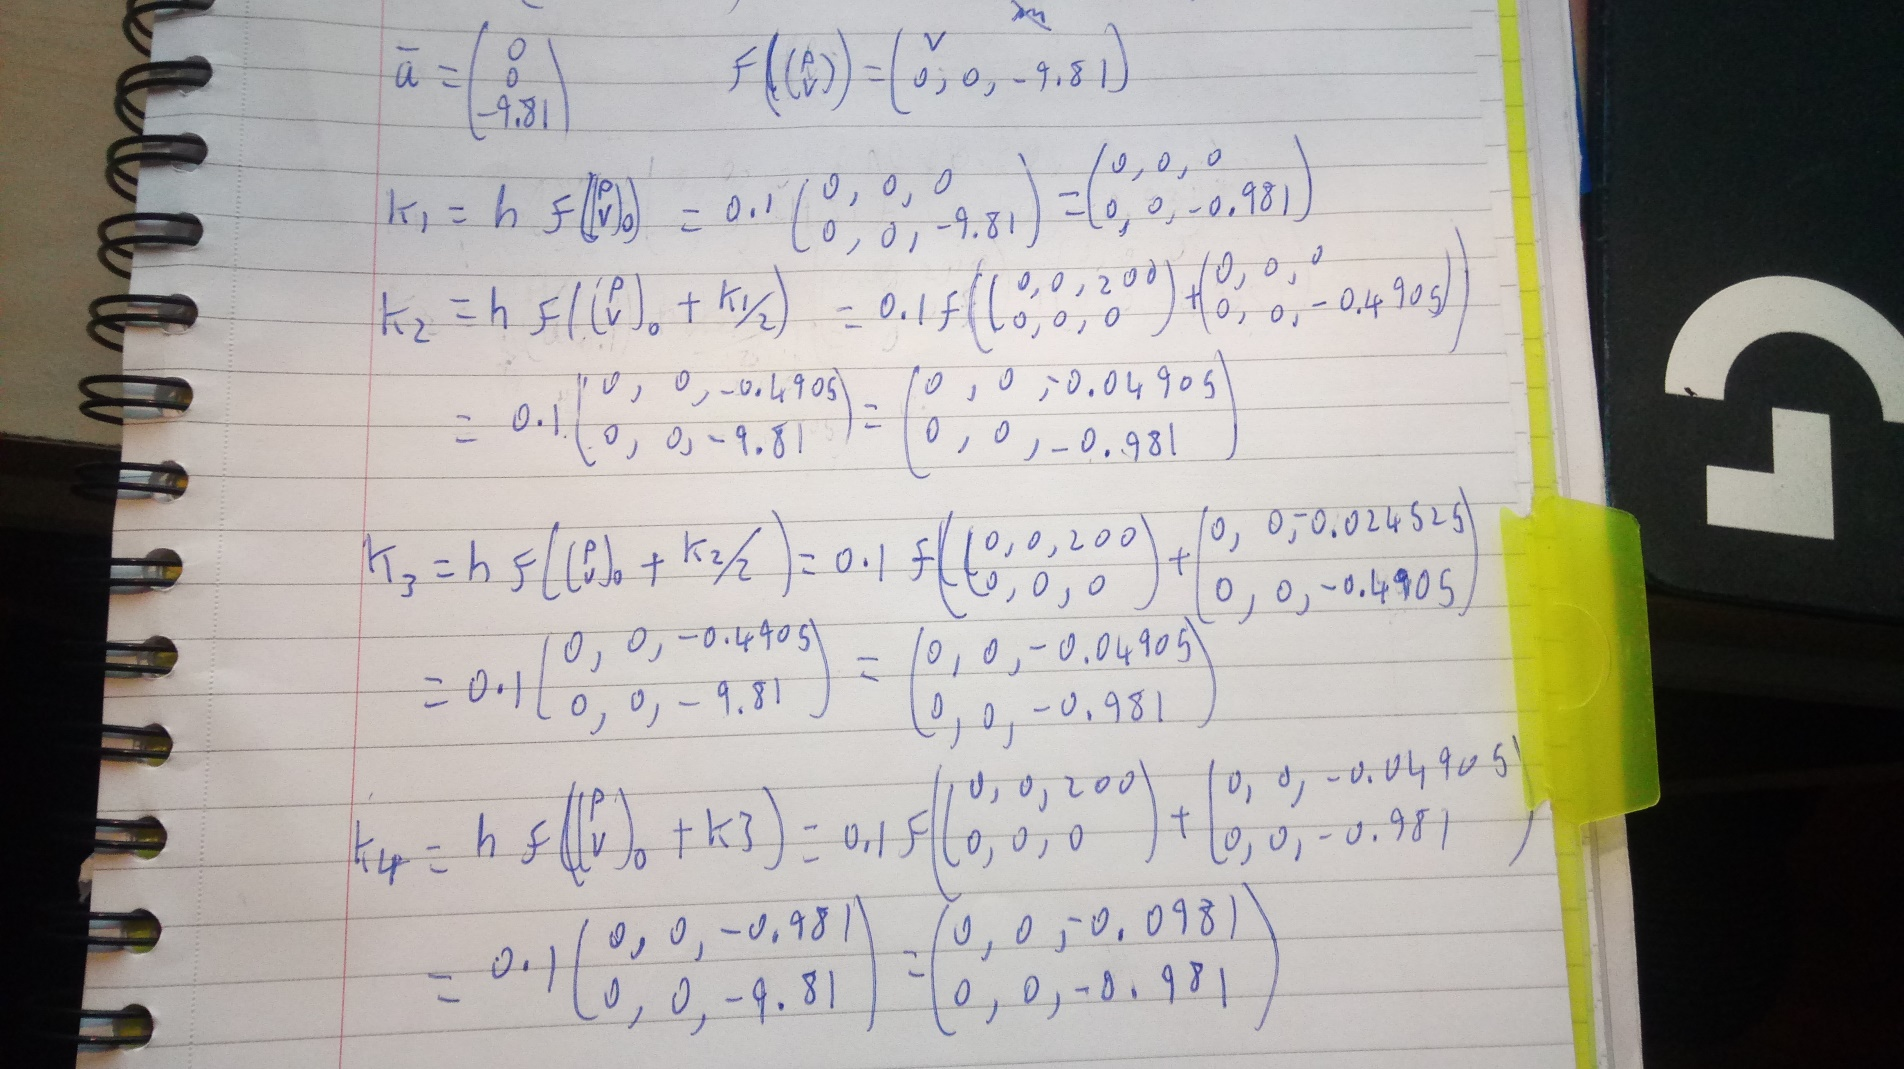 m
ā = (0 0 -9.81) F((p v)) = (v 0, 0, -9.81)
K₁ = h F((p v)₀) = 0.1 (0, 0, 0 0, 0, -9.81) = (0, 0, 0 0, 0, -0.981)
K₂ = h F((p v)₀ + K1/2) = 0.1 F((0, 0, 200 0, 0, 0) + (0, 0, 0 0, 0, -0.4905))
= 0.1 (0, 0, -0.4905 0, 0, -9.81) = (0, 0, -0.04905 0, 0, -0.981)
K₃ = h F((p v)₀ + K2/2) = 0.1 F((0, 0, 200 0, 0, 0) + (0, 0, -0.024525 0, 0, -0.4905)
= 0.1 (0, 0, -0.4905 0, 0, -9.81) = (0, 0, -0.04905 0, 0, -0.981)
K4 = h F((p v)₀ + K3) = 0.1 F((0, 0, 200 0, 0, 0) + (0, 0, -0.04905 0, 0, -0.981)
= 0.1 (0, 0, -0.981 0, 0, -9.81) = (0, 0, -0.0981 0, 0, -0.981)